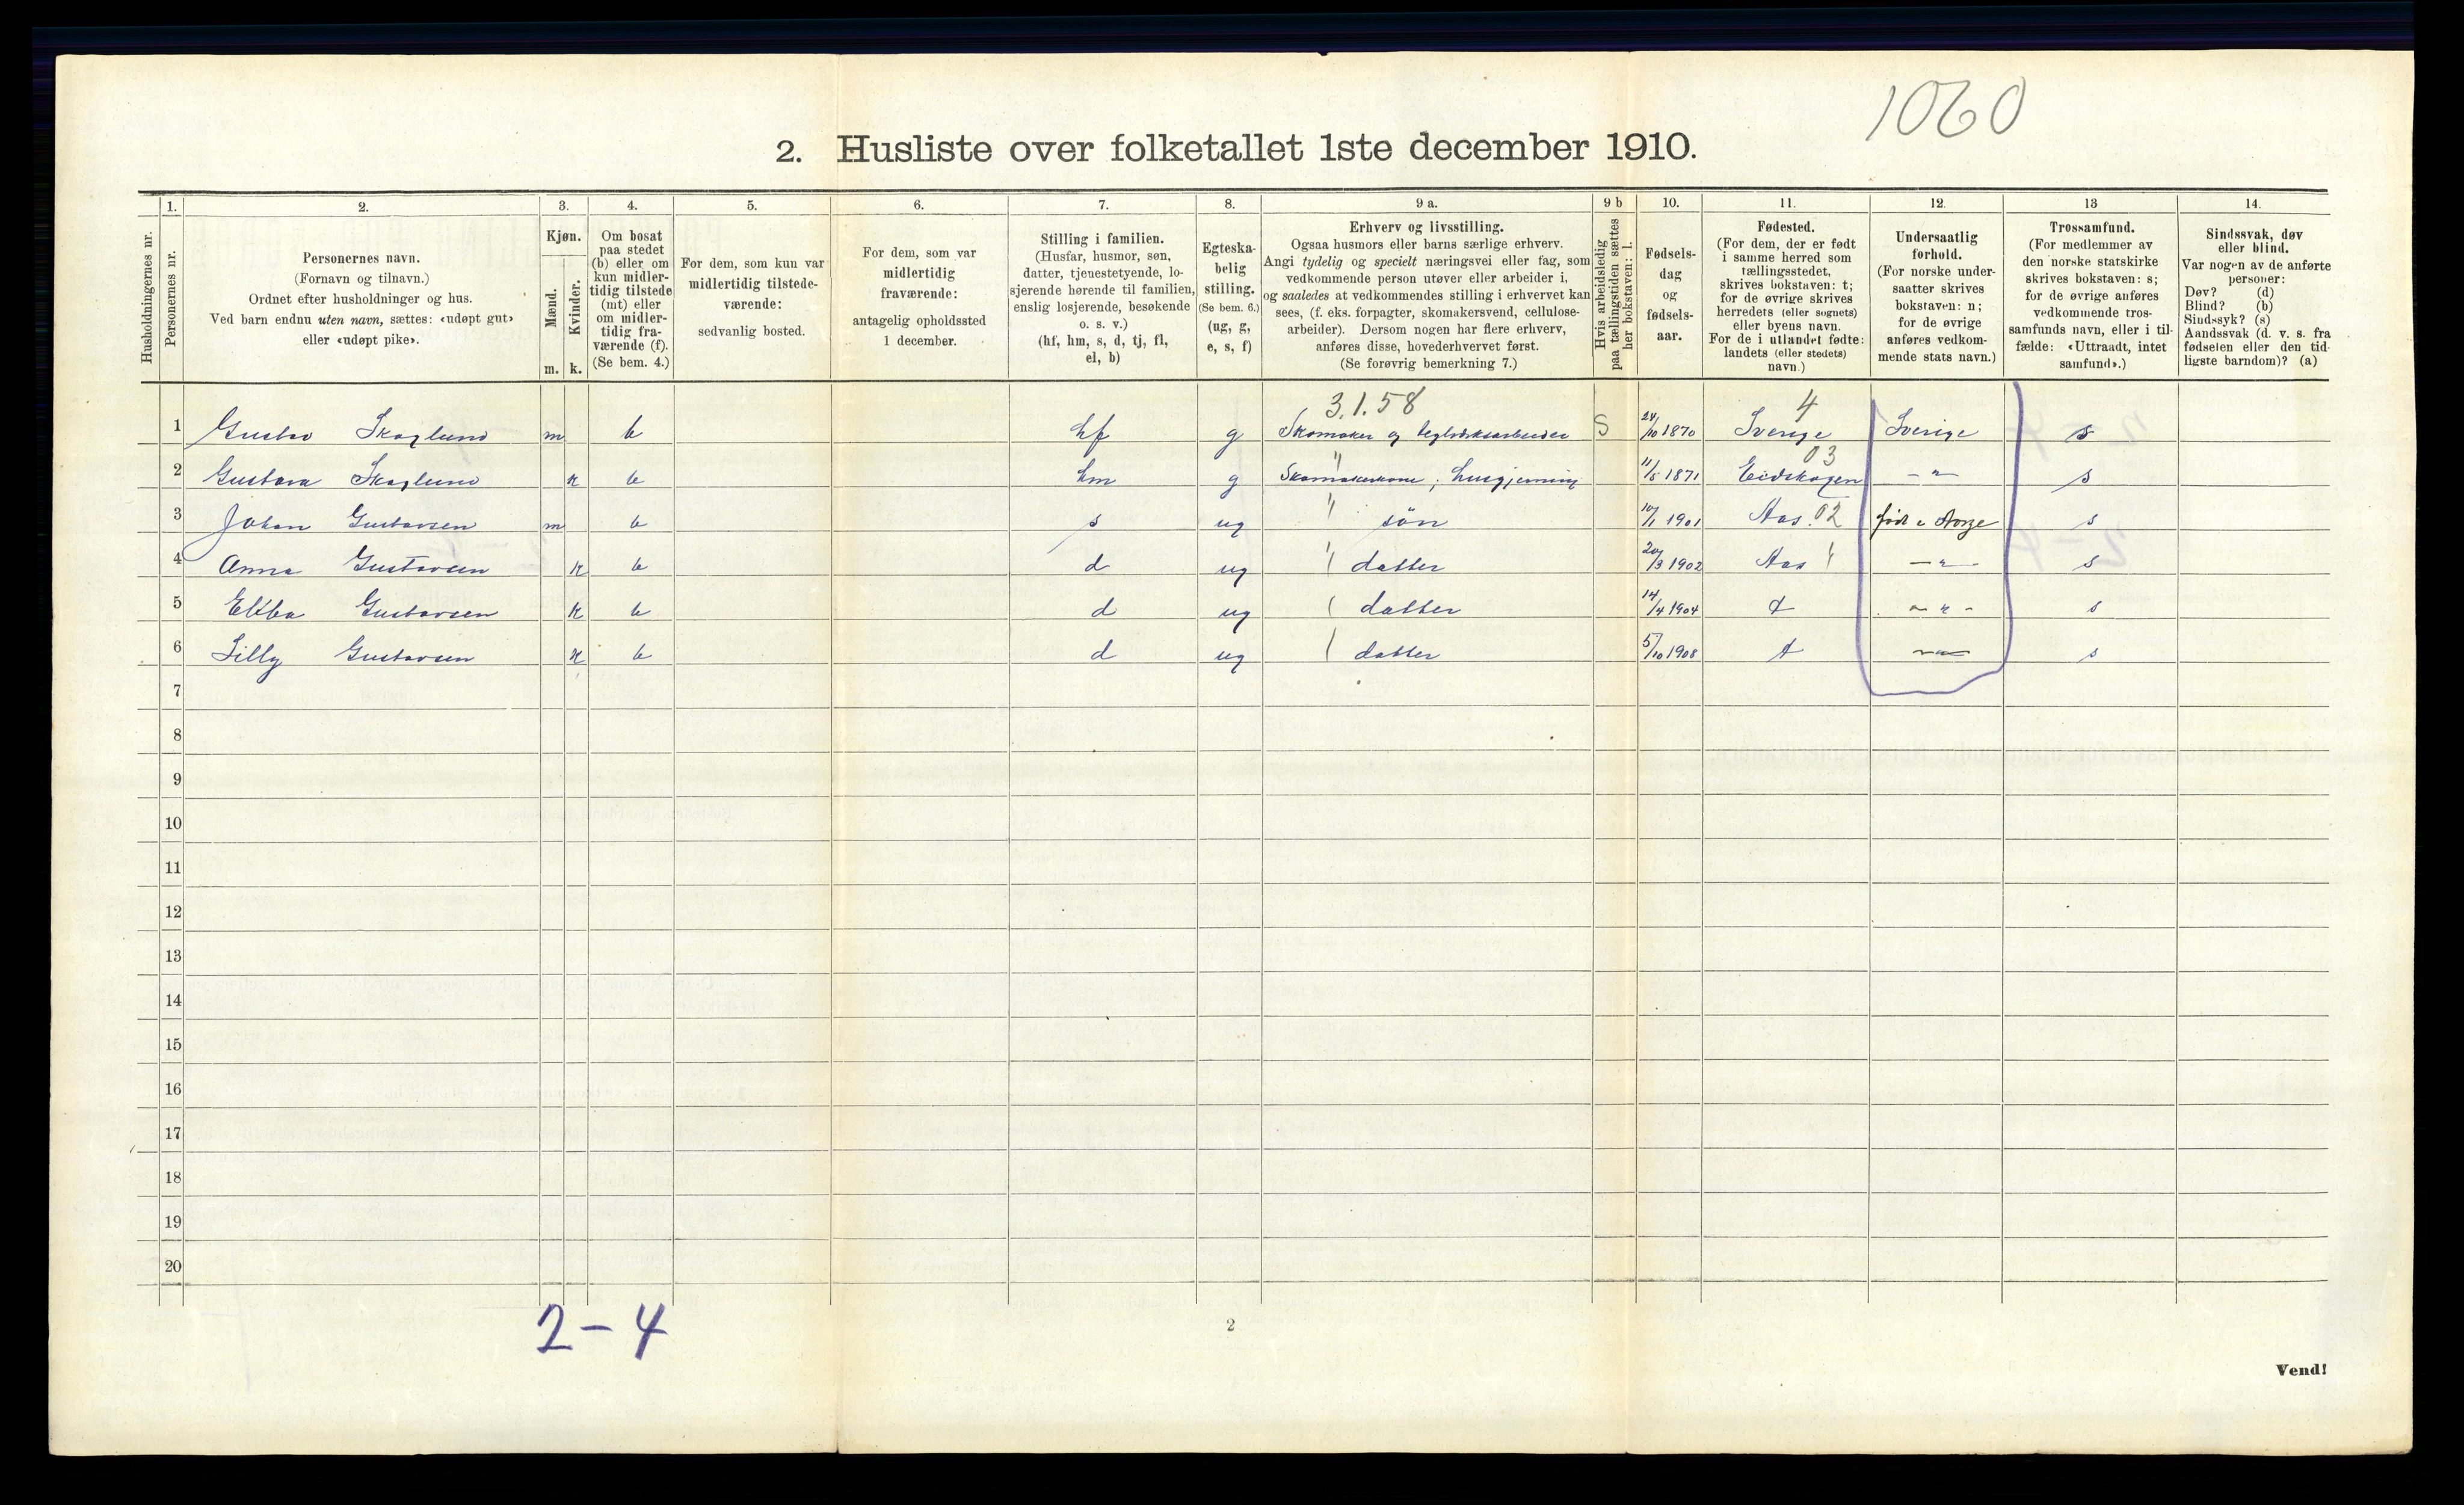 1060
2. Husliste over folketallet 1ste december 1910.
Husholdningernes nr.
1.
Personernes nr.
2.
Personernes navn.
(Fornavn og tilnavn.)
Ordnet efter husholdninger og hus.
Ved barn endnu uten navn, sættes: «udøpt gut»
eller «udøpt pike».
3.
Kjøn.
Mænd.
Kvinder.
m. k.
4.
Om bosat
paa stedet
(b) eller om
kun midler-
tidig tilstede
(mt) eller
om midler-
tidig fra-
værende (f).
(Se bem. 4.)
5.
For dem, som kun var
midlertidig tilstede-
værende:
sedvanlig bosted.
6.
For dem, som var
midlertidig
fraværende:
antagelig opholdssted
1 december.
7.
Stilling i familien.
(Husfar, husmor, søn,
datter, tjenestetyende, lo-
sjerende hørende til familien,
enslig losjerende, besøkende
o. s. v.)
(hf, hm, s, d, tj, fl,
el, b)
8.
Egteska-
belig
stilling.
(Se bem. 6.)
(ug, g,
e, s, f)
9 a.
Erhverv og livsstilling.
Ogsaa husmors eller barns særlige erhverv.
Angi tydelig og specielt næringsvei eller fag, som
vedkommende person utøver eller arbeider i,
og saaledes at vedkommendes stilling i erhvervet kan
sees, (f. eks. forpagter, skomakersvend, cellulose-
arbeider). Dersom nogen har flere erhverv,
anføres disse, hovederhvervet først.
(Se forøvrig bemerkning 7.)
9 b
Hvis arbeidsledig
paa tællingstiden sættes
her bokstaven: l.
10.
Fødsels-
dag
og
fødsels-
aar.
11.
Fødested.
(For dem, der er født
i samme herred som
tællingsstedet,
skrives bokstaven: t;
for de øvrige skrives
herredets (eller sognets)
eller byens navn.
For de i utlandet fødte:
landets (eller stedets)
navn.)
12.
Undersaatlig
forhold.
(For norske under-
saatter skrives
bokstaven: n;
for de øvrige
anføres vedkom-
mende stats navn.)
13
Trossamfund.
(For medlemmer av
den norske statskirke
skrives bokstaven: s;
for de øvrige anføres
vedkommende tros-
samfunds navn, eller i til-
fælde: «Uttraadt, intet
samfund».)
14.
Sindssvak, døv
eller blind.
Var nogen av de anførte
personer:
Døv? (d)
Blind? (b)
Sindssyk? (s)
Aandssvak (d. v. s. fra
fødselen eller den tid-
ligste barndom)? (a)
3.1.58 4
1 Gustav Skoglund m b hf g Skomaker og teglverksarbeider S 24/10 1870 Sverige Sverige s
03
2 Gustava Skoglund k b hm g Skomakerkone, husgjerning 11/5 1871 Eidskogen — " — s
3 Johan Gustavsen m b s ug " søn 10/1 1901 Aas. 02 født i Norge s
4 Anna Gustavsen k b d ug " datter 20/3 1902 Aas " — " — s
5 Ebba Gustavsen k b d ug datter 14/4 1904 t — " — s
6 Lilly Gustavsen k b d ug datter 5/10 1908 t — " — s
7
8
9
10
11
12
13
14
15
16
17
18
19
20
2 – 4
2
Vend!